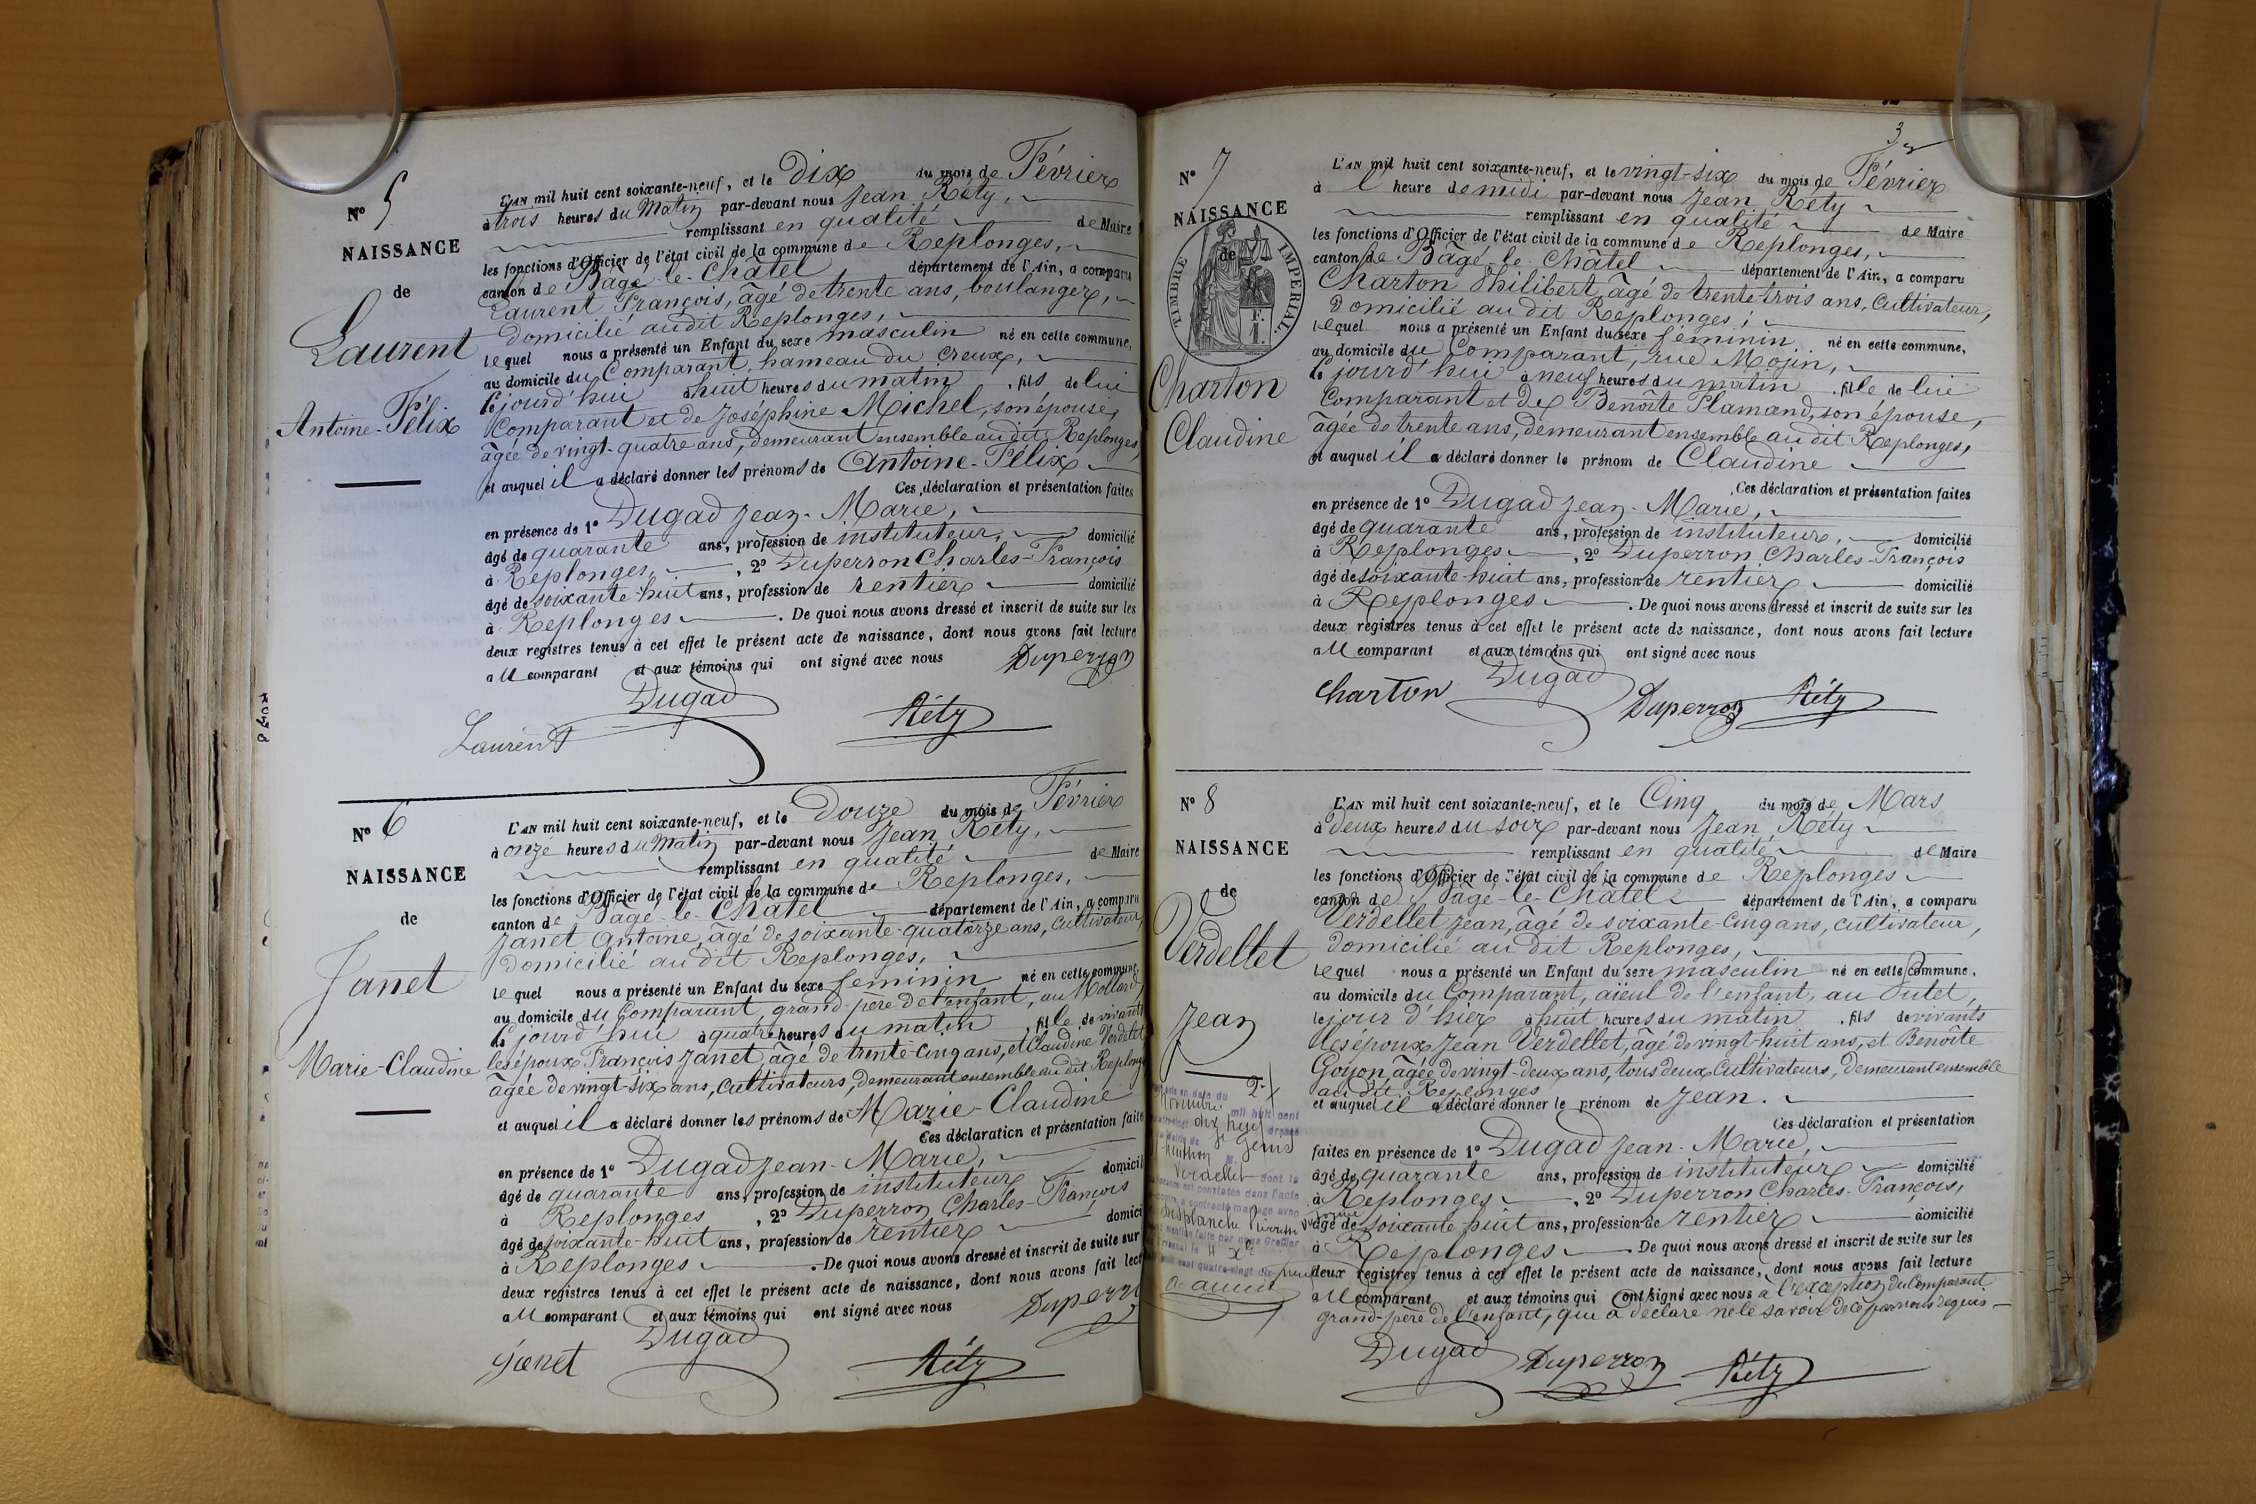 N° 5
NAISSANCE
de
Laurent
Antoine-Félix
L'AN mil huit cent soixante-neuf, et le Dix du mois de Février
à trois heures du Matin par-devant nous Jean Réty,
remplissant en qualité de Maire
les fonctions d'Officier de l'état civil de la commune de Replonges,
canton de Bâgé-le-Châtel département de l'Ain, a comparu
Laurent François, âgé de trente ans, boulanger,
domicilié audit Replonges,
lequel nous a présenté un Enfant du sexe masculin né en cette commune,
au domicile du Comparant, hameau du Creux,
le jourd'hui à huit heures du matin, fils de lui
Comparant et de Joséphine Michel, son épouse,
âgée de vingt-quatre ans, demeurant ensemble au dit Replonges,
et auquel il a déclaré donner les prénoms de Antoine-Félix
Ces déclaration et présentation faites
en présence de 1° Dugad Jean-Marie,
âgé de quarante ans, profession de instituteur, domicilié
à Replonges, 2° Duperron Charles-François
âgé de soixante-huit ans, profession de rentier domicilié
à Replonges. De quoi nous avons dressé et inscrit de suite sur les
deux registres tenus à cet effet le présent acte de naissance, dont nous avons fait lecture
au comparant et aux témoins qui ont signé avec nous Duperron
Dugad
Laurent Réty
N° 6
NAISSANCE
de
Janet
Marie-Claudine
L'AN mil huit cent soixante-neuf, et le Douze du mois de Février
à onze heures du Matin par-devant nous Jean Réty,
remplissant en qualité de Maire
les fonctions d'Officier de l'état civil de la commune de Replonges,
canton de Bâgé-le-Châtel département de l'Ain, a comparu
Janet Antoine, âgé de soixante-quatorze ans, cultivateur,
domicilié au dit Replonges,
lequel nous a présenté un Enfant du sexe féminin né en cette commune,
au domicile du Comparant, grand-père de l'enfant, au Mollard,
le jourd'hui à quatre heures du matin, fille de vivants
les époux François Janet, âgé de trente-cinq ans, et Claudine Verdellet
âgée de vingt-six ans, cultivateurs, demeurant ensemble au dit Replonges
et auquel il a déclaré donner les prénoms de Marie-Claudine
Ces déclaration et présentation faites
en présence de 1° Dugad Jean-Marie,
âgé de quarante ans, profession de instituteur domicil
à Replonges, 2° Duperron Charles-François
âgé de soixante-huit ans, profession de rentier domici
à Replonges. De quoi nous avons dressé et inscrit de suite sur
deux registres tenus à cet effet le présent acte de naissance, dont nous avons fait lect
au comparant et aux témoins qui ont signé avec nous Duperro
Dugad
Janet Réty
3
N° 7
NAISSANCE
de
TIMBRE IMPERIAL
Charton
Claudine
L'AN mil huit cent soixante-neuf, et le vingt-six du mois de Février
à l heure de midi par-devant nous Jean Réty
remplissant en qualité de Maire
les fonctions d'Officier de l'état civil de la commune de Replonges,
canton de Bâgé-le-Châtel département de l'Ain, a comparu
Charton Philibert, âgé de trente-trois ans, cultivateur,
domicilié au dit Replonges,
lequel nous a présenté un Enfant du sexe féminin né en cette commune,
au domicile du Comparant, rue Mojin,
le jourd'hui à neuf heures du matin, fille de lui
Comparant et de Benoîte Plamand, son épouse,
âgée de trente ans, demeurant ensemble au dit Replonges,
et auquel il a déclaré donner le prénom de Claudine
Ces déclaration et présentation faites
en présence de 1° Dugad Jean-Marie,
âgé de quarante ans, profession de instituteur, domicilié
à Replonges, 2° Duperron Charles-François
âgé de soixante-huit ans, profession de rentier domicilié
à Replonges. De quoi nous avons dressé et inscrit de suite sur les
deux registres tenus à cet effet le présent acte de naissance, dont nous avons fait lecture
au comparant et aux témoins qui ont signé avec nous
Charton Dugad Duperron Réty
N° 8
NAISSANCE
de
Verdellet
Jean
L'AN mil huit cent soixante-neuf, et le Cinq du mois de Mars
à Deux heures du soir par-devant nous Jean Réty
remplissant en qualité de Maire
les fonctions d'Officier de l'état civil de la commune de Replonges
canton de Bâgé-le-Châtel département de l'Ain, a comparu
Verdellet Jean, âgé de soixante-cinq ans, cultivateur,
domicilié au dit Replonges,
lequel nous a présenté un Enfant du sexe masculin né en cette commune,
au domicile du Comparant, aïeul de l'enfant, au Putet,
le jour d'hier à huit heures du matin, fils de vivants
les époux Jean Verdellet, âgé de vingt-huit ans, et Benoîte
Goyon, âgée de vingt-deux ans, tous deux cultivateurs, demeurant ensemble
au dit Replonges
et auquel il a déclaré donner le prénom de Jean.
Ces déclaration et présentation
faites en présence de 1° Dugad Jean-Marie,
âgé de quarante ans, profession de instituteur domicilié
à Replonges, 2° Duperron Charles-François,
âgé de soixante-huit ans, profession de rentier domicilié
à Replonges. De quoi nous avons dressé et inscrit de suite sur les
deux registres tenus à cet effet le présent acte de naissance, dont nous avons fait lecture
au comparant et aux témoins qui ont signé avec nous à l'exception du Comparant
grand-père de l'enfant, qui a déclaré ne le savoir de ce par nous requis
Dugad Duperron Réty
en date du
Novembre mil huit cent
dix neuf
Verdellet dont la
constatée dans l'acte
contracté mariage avec
Desplanche
faite par nous Greffier
quatre-vingt